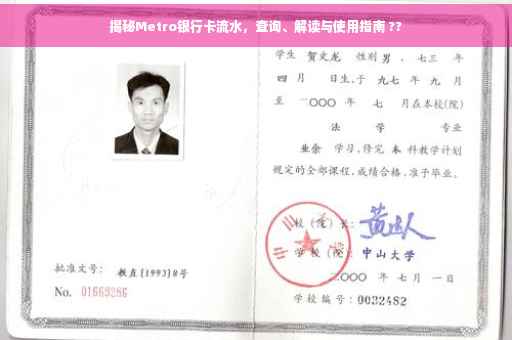 揭秘Metro银行卡流水，查询、解读与使用指南 ??
学生 贺文龙 性别 男 、七三 年
四 月 日生，于 九七 年 九 月
至 二〇〇〇 年 七 月在本校(院)
法 学 专业
业余 学习，修完 本 科教学计划
规定的全部课程，成绩合格，准予毕业。
校（院）长：
学校（院）： 中山大学
二〇〇〇 年 七 月 一 日
学校编号：0032482
批准文号： 教直[1993]8号
No. 01669286